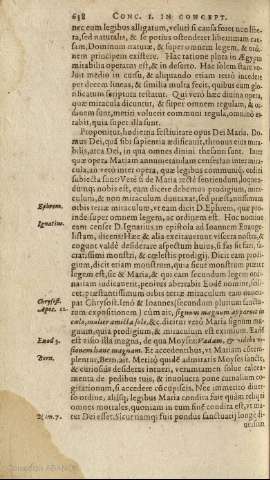 638 CONC. I. IN CONCEPT.
nec eum legibus alligatum, veluti si causa foret non libe-
ra, sed naturalis, & se potius ostenderet liberrimam cau-
sam, Dominum naturæ, & super omnem legem, & ordi-
nem principem existere. Hac ratione plura in Ægypto
mirabilia operatus est, & in deserto. Hac solem stare
iussit medio in cursu, & aliquando etiam retrò incedere
per decem lineas, & similia multa fecit, quibus eam
significatum scriptura testatur. Qui verò hæc divina opera,
quæ miracula dicuntur, & super omnem regulam, & or-
dinem sunt, metiri voluerit communi regula, omninò er-
rabit, quia super illa sunt.
Proponitur, hodierna festiuitate opus Dei Maria. Do-
mus Dei, quã sibi sapientia ædificauit, thronus eius mira-
bilis, arca Dei, in qua omnes divini thesauri sunt. Inter
quæ opera Mariam annumerandam censestis inter mira-
cula, an verò inter opera, quæ legibus communib. ordini
subiecta sunt? Vere si de Maria rectè sentiendum, loquen-
dumq; nobis est, eam dicere debemus prodigium, mira-
culum, & non miraculum duntaxat, sed præstantissimum
Ephrem. orbis terræ miraculum, ut eam dicit D. Ephrem, quæ pro-
inde super omnem legem, ac ordinem est. Hoc nomine
Ignatius. eam censet D. Ignatius in epistola ad Ioannem Euange-
listam, dicens
congue valdè desiderare aspectum huius, si fas sit fari, sa-
cratissimi monstri, & cœlestis prodigij. Dicit eam prodi-
gium, dicit etiam monstrum, quia sicut monstrum præter
legem est, sic & Maria, & qui eam secundum legem ordi-
nariam iudicauerit, penitus aberrabit. Eodẽ nomine, scili-
cet, præstantissimum orbis terræ miraculum eam nuncu-
Chrysost. pat Chrysost. Imò & Ioannes secundum plurium sancto-
Apoc. 12. rum expositionem, cùm ait, signum magnum apparuit in
cælo, mulier amicta sole, &c. disertè vocat Maria signum ma-
gnum, quia prodigium, & miraculum est eximium. Eadẽ
Exod 3. est visio illa magna, de qua Moyses: Vadam, & videbo vi-
sionem hanc magnam. Et accedentibus, ut Mariam contem-
Bern. plentur, Bern. ait. Metitò quidẽ admiraris Moyses sancte,
& curiosiùs desideras intueri, verumtamen solue calcea-
menta de pedibus tuis, & inuolucra pone carnalium co-
gitationum, si accedere cõcupiscis. Nec immerito
ordine, aliisq; legibus Maria condita fuit quàm reliqui
omnes mortales, quoniam in eum finẽ condita est, vt ma-
Num. 7. ter Dei esset. Sicut namq; fuit pondus sanctuarij longè di-